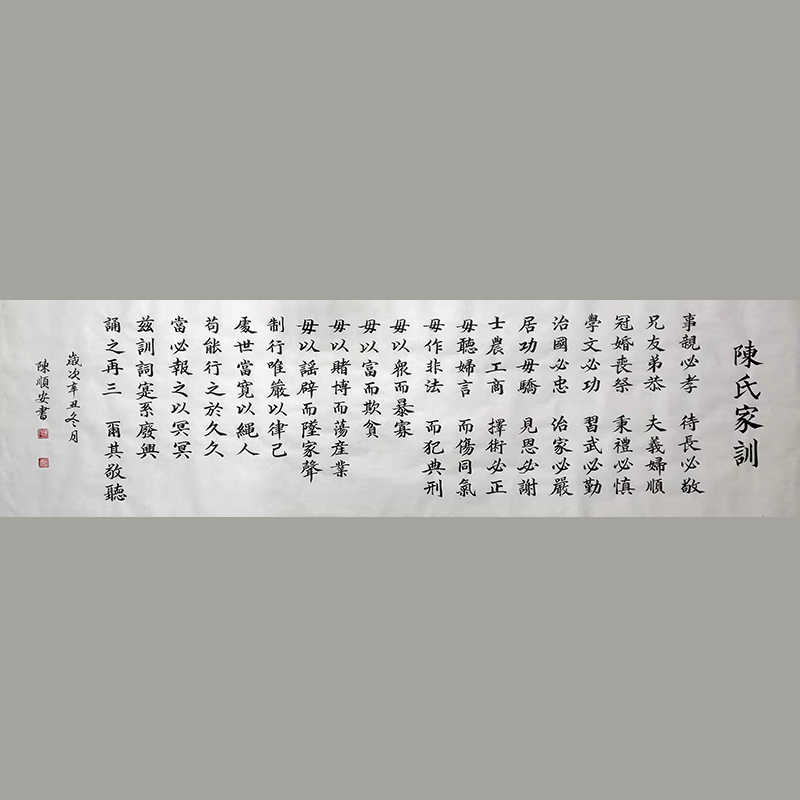 陳氏家訓
事親必孝 待長必敬
兄友弟恭 夫義婦順
冠婚喪祭 秉禮必慎
學文必功 習武必勤
治國必忠 治家必嚴
居功毋驕 見恩必謝
士農工商 擇術必正
毋聽婦言 而傷同氣
毋作非法 而犯典刑
毋以衆而暴寡
毋以富而欺貧
毋以賭博而蕩產業
毋以謡辟而墜家聲
制行唯嚴以律己
處世當寬以繩人
苟能行之於久久
當必報之以冥冥
兹訓詞寔系廢興
誦之再三 爾其敬聽
歲次辛丑冬月
陳順安書